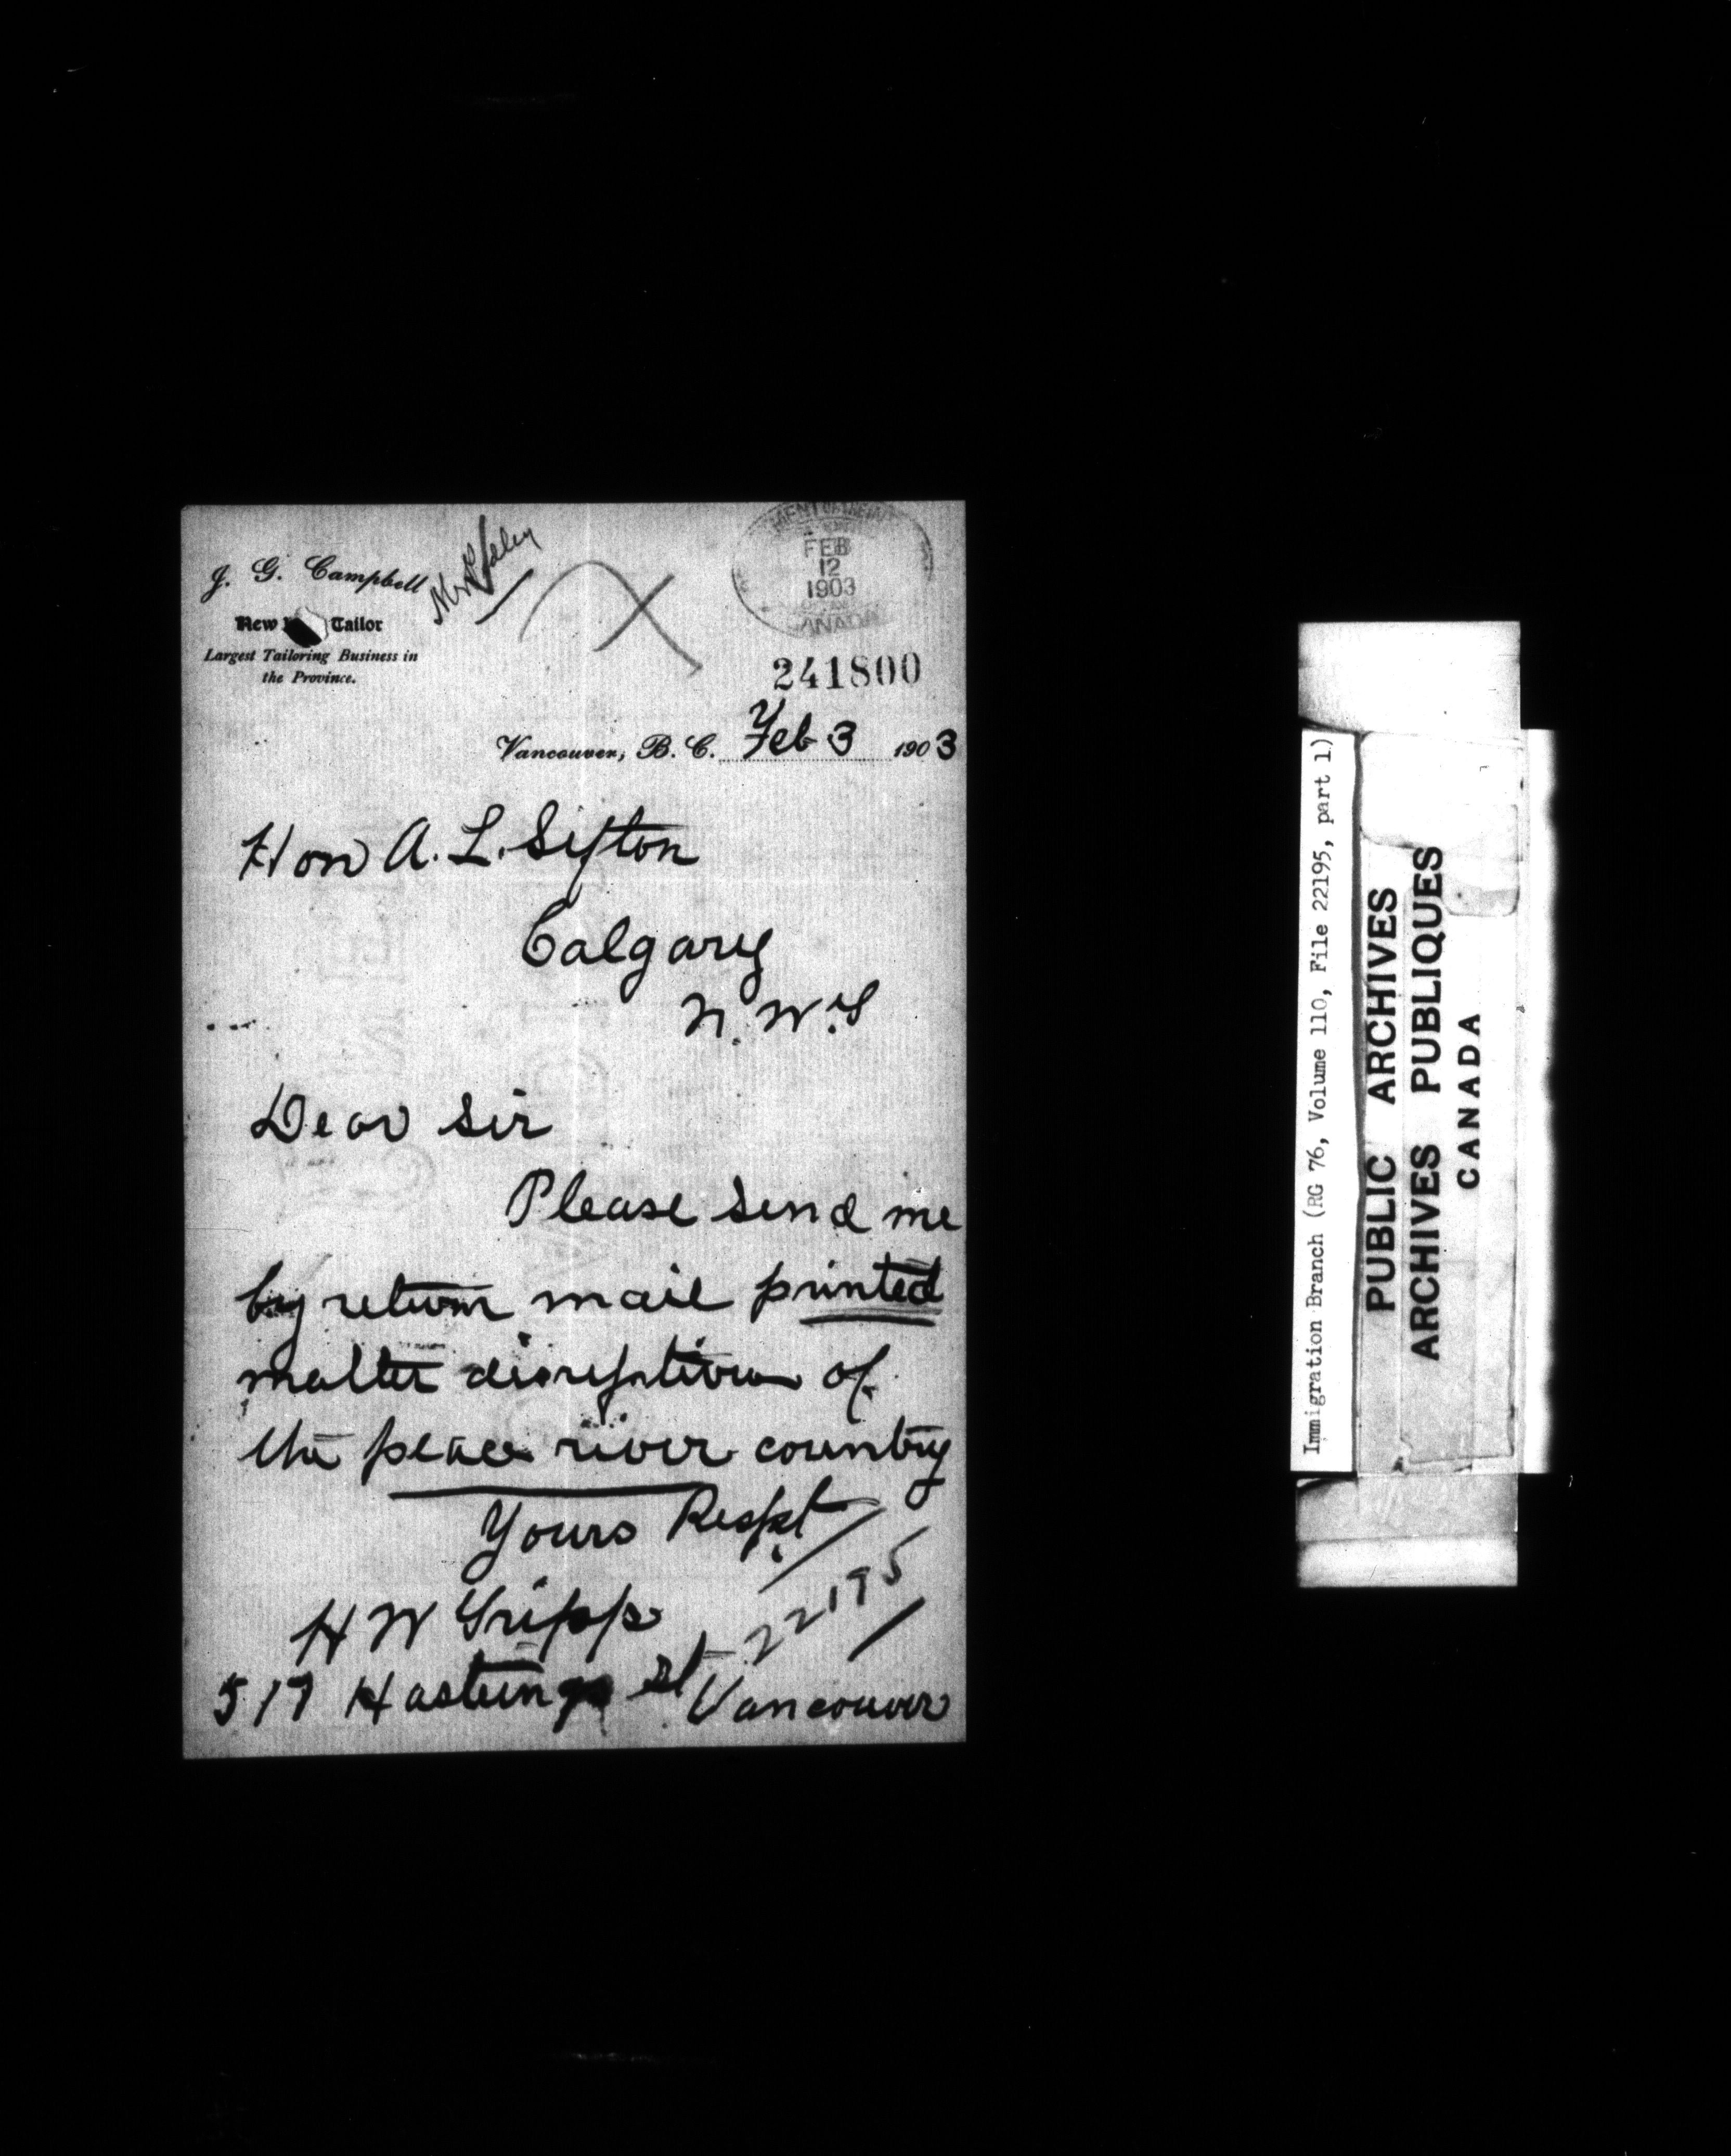 J. G. Campbell
New Tailor
Largest Tailoring Business in
the Province.
FEB
12
1903
CANADA
241800
Vancouver, B. C. Feb 3 1903
Hon A. L. Sifton
Calgary
N. W. T
Dear Sir
Please send me
by return mail printed
matter discription of
the peace river country
Yours Respt
22195
H W Gripp
517 Hastings St Vancouver
Immigration Branch (RG 76, Volume 110, File 22195, part 1)
PUBLIC ARCHIVES
ARCHIVES PUBLIQUES
CANADA